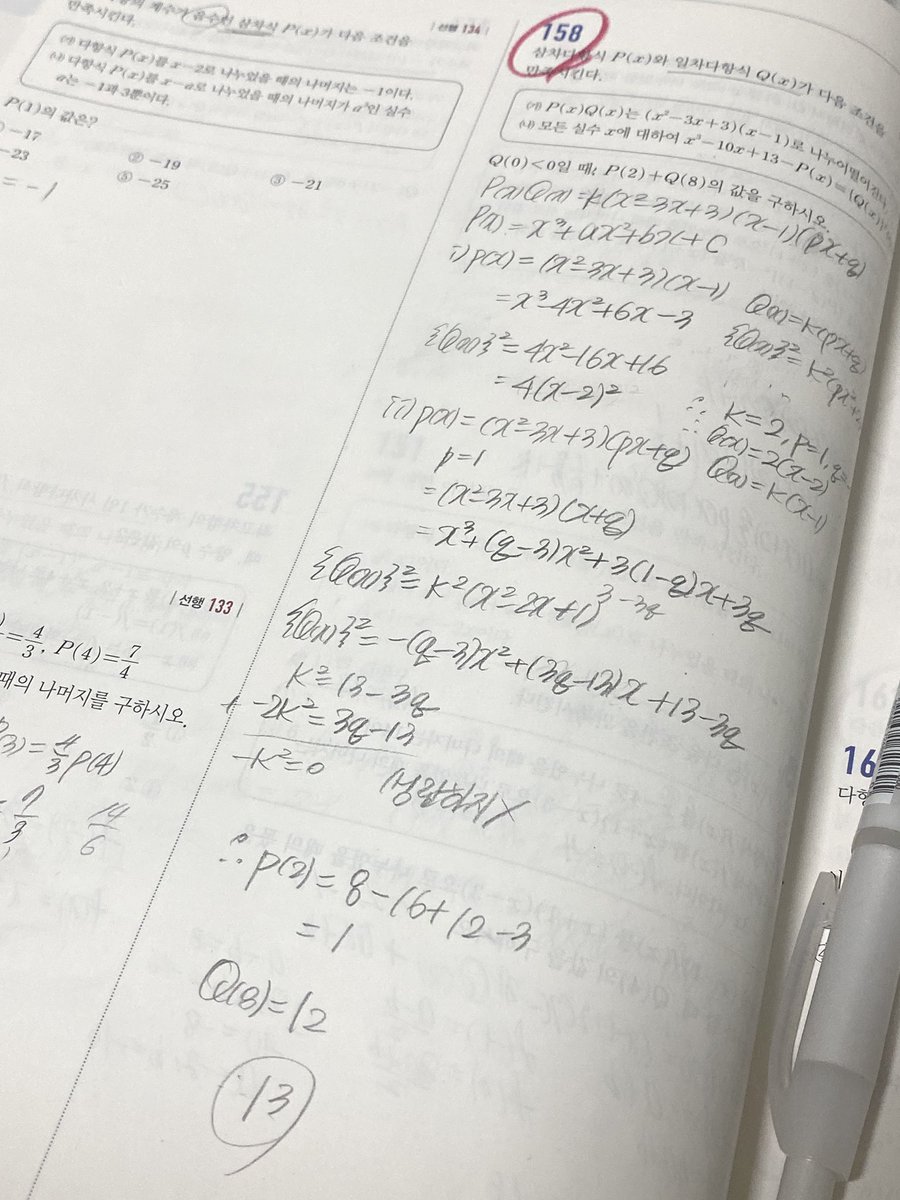 삼차식 P(x)가 다음 조건을
만족시킨다.
| 선행 134
(가) 다항식 P(x)를 x-2로 나누었을 때의 나머지는 -1이다.
(나) 다항식 P(x)를 x-a로 나누었을 때의 나머지가 a³인 실수
a는 -1과 3뿐이다.
P(1)의 값은?
-17
② -19
③ -21
-23
⑤ -25
= -1
| 선행 133
=4/3, P(4)=7/4
때의 나머지를 구하시오.
3)=4/3 P(4)
=7/3
14/6
158
삼차다항식 P(x)와 일차다항식 Q(x)가 다음 조건을
만족시킨다.
(가) P(x)Q(x)는 (x²-3x+3)(x-1)로 나누어떨어진다.
(나) 모든 실수 x에 대하여 x³-10x+13-P(x)={Q(x)}²
Q(0)<0일 때, P(2)+Q(8)의 값을 구하시오.
P(x)Q(x)=k(x²-3x+3)(x-1)(px+q)
P(x)=x³+ax²+bx+c
i) P(x)=(x²-3x+3)(x-1)
=x³-4x²+6x-3
Q(x)=k(px+q)
{Q(x)}²=4x²-16x+16
{Q(x)}²=k²(px²+
=4(x-2)²
∴ k=2, p=1, q=
∴ Q(x)=2(x-2)
ii) P(x)=(x²-3x+3)(px+q) Q(x)=k(x-1)
p=1
=(x²-3x+3)(x+q)
=x³+(q-3)x²+3(1-q)x+3q
3-3q
{Q(x)}²=k²(x²-2x+1)
{Q(x)}²=-(q-3)x²+(3q-13)x+13-3q
k²=13-3q
+ -2k²=3q-13
-k²=0
성립하지 X
∴ P(2)=8-16+12-3
=1
Q(8)=12
13
16
다항